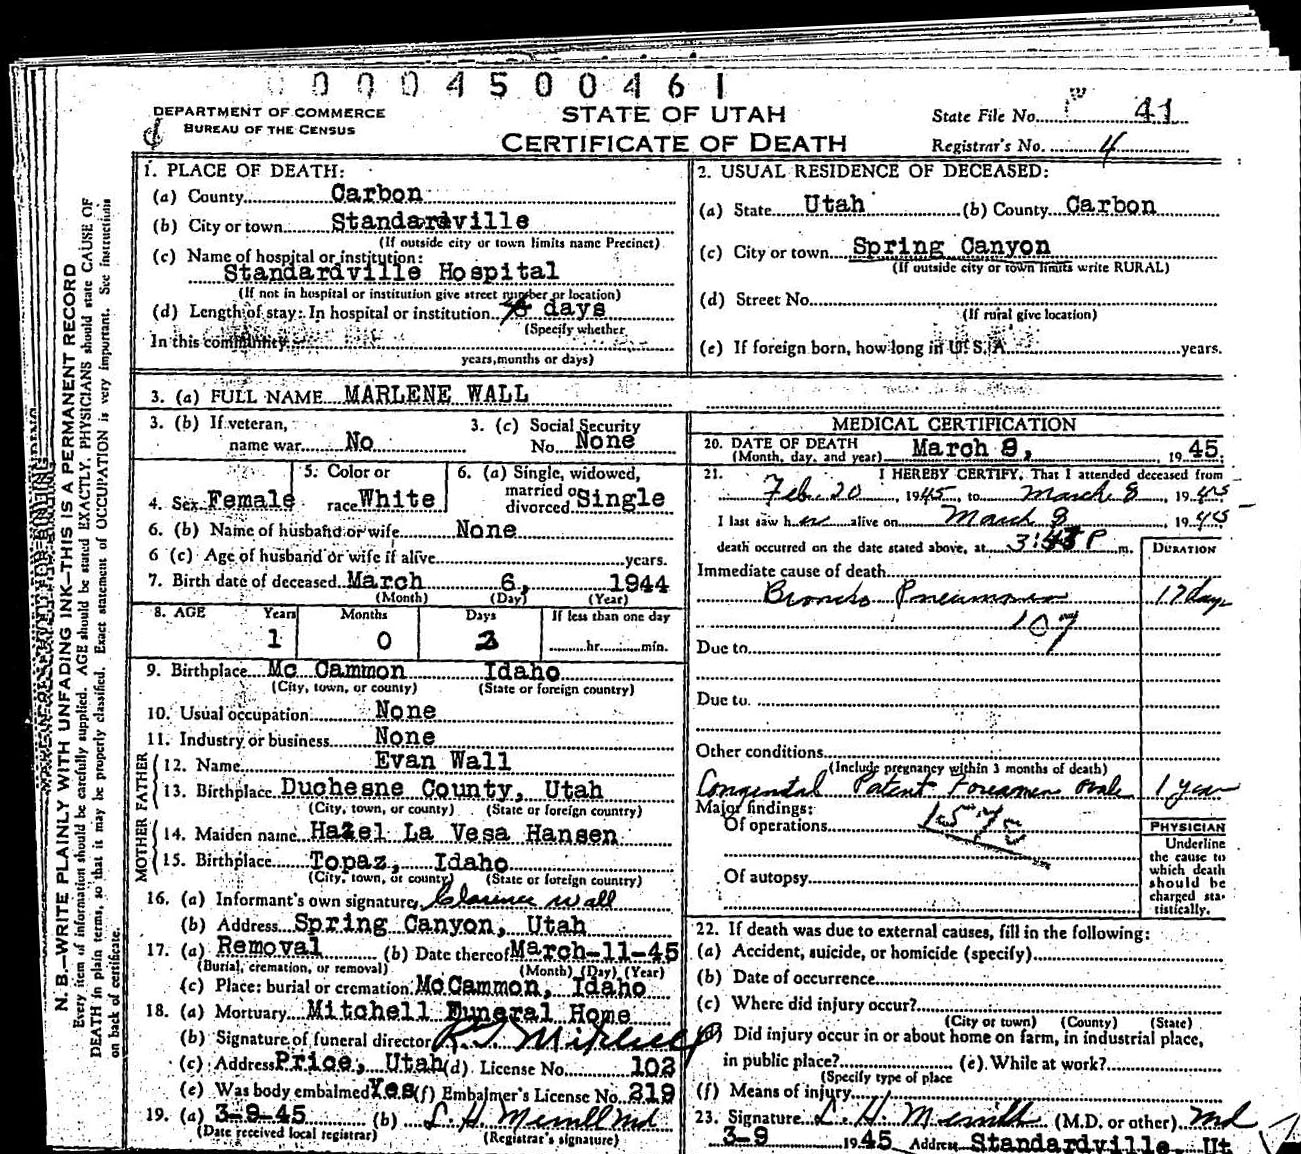 0 0 0 4 5 0 0 4 6 1
DEPARTMENT OF COMMERCE
BUREAU OF THE CENSUS
STATE OF UTAH
CERTIFICATE OF DEATH
State File No. 41
Registrar's No. 4
N. B.—WRITE PLAINLY WITH UNFADING INK—THIS IS A PERMANENT RECORD
Every item of information should be carefully supplied. AGE should be stated EXACTLY. PHYSICIANS should state CAUSE OF
DEATH in plain terms, so that it may be properly classified. Exact statement of OCCUPATION is very important. See instructions
on back of certificate.
1. PLACE OF DEATH:
(a) County Carbon
(b) City or town Standardville
(If outside city or town limits name Precinct)
(c) Name of hospital or institution:
Standardville Hospital
(If not in hospital or institution give street number or location)
(d) Length of stay: In hospital or institution days
(Specify whether
In this community
years, months or days)
2. USUAL RESIDENCE OF DECEASED:
(a) State Utah (b) County Carbon
(c) City or town Spring Canyon
(If outside city or town limits write RURAL)
(d) Street No.
(If rural give location)
(e) If foreign born, how long in U. S. A. years.
3. (a) FULL NAME MARLENE WALL
3. (b) If veteran,
name war No
3. (c) Social Security
No. None
4. Sex Female
5. Color or
race White
6. (a) Single, widowed,
married or
divorced Single
6. (b) Name of husband or wife None
6 (c) Age of husband or wife if alive years.
7. Birth date of deceased March 6, 1944
(Month) (Day) (Year)
8. AGE Years Months Days If less than one day
1 0 2 hr. min.
9. Birthplace Mc Cammon Idaho
(City, town, or county) (State or foreign country)
10. Usual occupation None
11. Industry or business None
FATHER
12. Name Evan Wall
13. Birthplace Duchesne County, Utah
(City, town, or county) (State or foreign country)
MOTHER
14. Maiden name Hazel La Vesa Hansen
15. Birthplace Topaz, Idaho
(City, town, or county) (State or foreign country)
16. (a) Informant's own signature Clarence Wall
(b) Address Spring Canyon, Utah
17. (a) Removal (b) Date thereof March-11-45
(Burial, cremation, or removal) (Month) (Day) (Year)
(c) Place: burial or cremation McCammon, Idaho
18. (a) Mortuary Mitchell Funeral Home
(b) Signature of funeral director Mitchell
(c) Address Price, Utah (d) License No. 102
(e) Was body embalmed Yes (f) Embalmer's License No. 219
19. (a) 3-9-45 (b) L. H. Merrill md
(Date received local registrar) (Registrar's signature)
MEDICAL CERTIFICATION
20. DATE OF DEATH March 8, 1945
(Month, day, and year)
21. I HEREBY CERTIFY, That I attended deceased from
Feb. 20, 1945, to March 8, 1945
I last saw her alive on March 8, 1945
death occurred on the date stated above, at P m.
DURATION
Immediate cause of death
Broncho Pneumonia 17 days
107
Due to
Due to
Other conditions
(Include pregnancy within 3 months of death)
Congenital Patent Foramen ovale 1 year
Major findings:
Of operations
Of autopsy
PHYSICIAN
Underline
the cause to
which death
should be
charged sta-
tistically.
22. If death was due to external causes, fill in the following:
(a) Accident, suicide, or homicide (specify)
(b) Date of occurrence
(c) Where did injury occur?
(City or town) (County) (State)
(d) Did injury occur in or about home on farm, in industrial place,
in public place? (e) While at work?
(Specify type of place
(f) Means of injury
23. Signature L. H. Merrill (M.D. or other) md
3-9 1945 Address Standardville, Ut